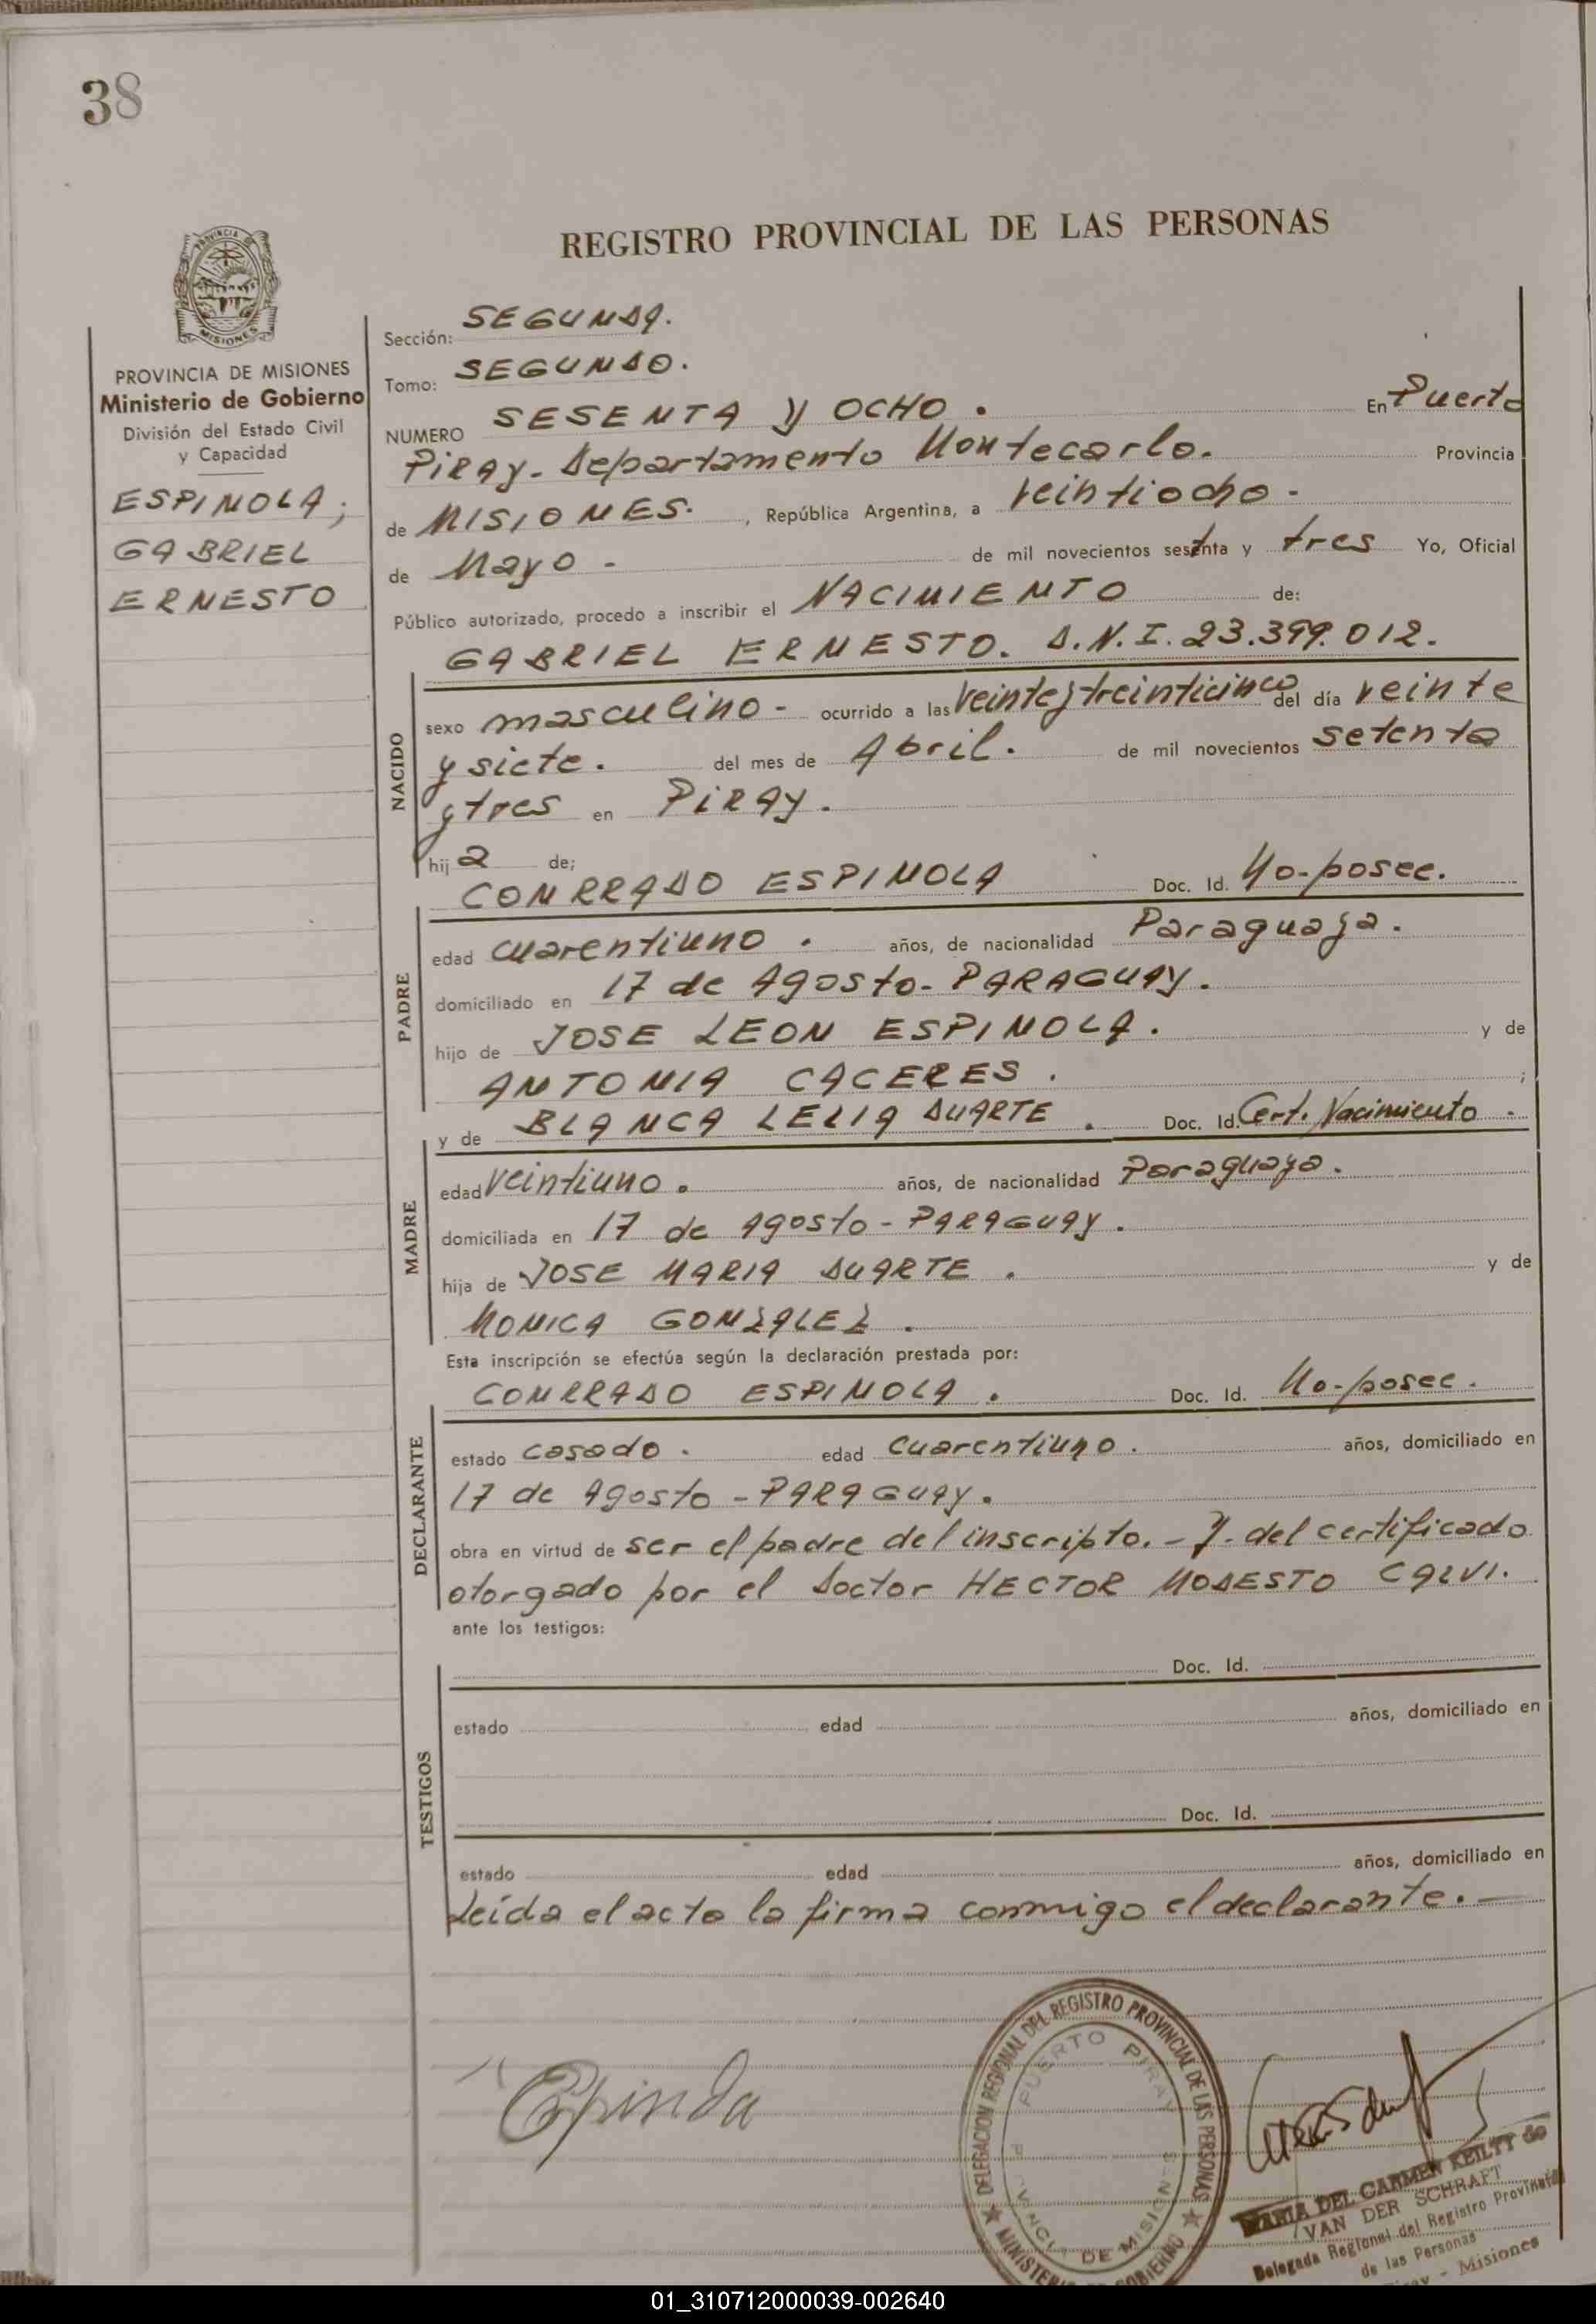 38
REGISTRO PROVINCIAL DE LAS PERSONAS
MISIONES
PROVINCIA DE MISIONES
Ministerio de Gobierno
División del Estado Civil
y Capacidad
ESPINOLA;
GABRIEL
ERNESTO
Sección: SEGUNDA.
Tomo: SEGUNDO.
NUMERO SESENTA Y OCHO. En Puerto
PiRAY - Departamento Montecarlo. Provincia
de MISIONES. , República Argentina, a veintiocho -
de Mayo - de mil novecientos setenta y tres Yo, Oficial
Público autorizado, procedo a inscribir el NACIMIENTO de:
GABRIEL ERNESTO. D.N.I. 23.399.012.
NACIDO
sexo masculino - ocurrido a las veinte y treinticinco del día veinte
y siete. del mes de Abril. de mil novecientos setenta
y tres en PiRAY.
hij o de;
CONRRADO ESPINOLA Doc. Id. No-posee.
PADRE
edad cuarentiuno. años, de nacionalidad Paraguaya.
domiciliado en 17 de Agosto - PARAGUAY.
hijo de JOSE LEON ESPINOLA. y de
ANTONIA CACERES. ;
y de BLANCA LELIA DUARTE. Doc. Id. Cert. Nacimiento -
MADRE
edad veintiuno. años, de nacionalidad Paraguaya.
domiciliada en 17 de Agosto - PARAGUAY.
hija de JOSE MARIA DUARTE. y de
MONICA GONZALEZ.
Esta inscripción se efectúa según la declaración prestada por:
CONRRADO ESPINOLA. Doc. Id. No-posee.
DECLARANTE
estado casado. edad cuarentiuno. años, domiciliado en
17 de Agosto - PARAGUAY.
obra en virtud de ser el padre del inscripto. - Y. del certificado
otorgado por el Doctor HECTOR MODESTO CALVI.
ante los testigos:
TESTIGOS
Doc. Id.
estado edad años, domiciliado en
Doc. Id.
estado edad años, domiciliado en
Leída el acta la firma conmigo el declarante. -
Espinola
DELEGACION REGIONAL DEL REGISTRO PROVINCIAL DE LAS PERSONAS
MINISTERIO DE GOBIERNO
PUERTO PIRAY
PROVINCIA DE MISIONES
MARIA DEL CARMEN KEILTY de
VAN DER SCHRAFT
Delegada Regional del Registro Provincial
de las Personas
Piray - Misiones
01_310712000039-002640